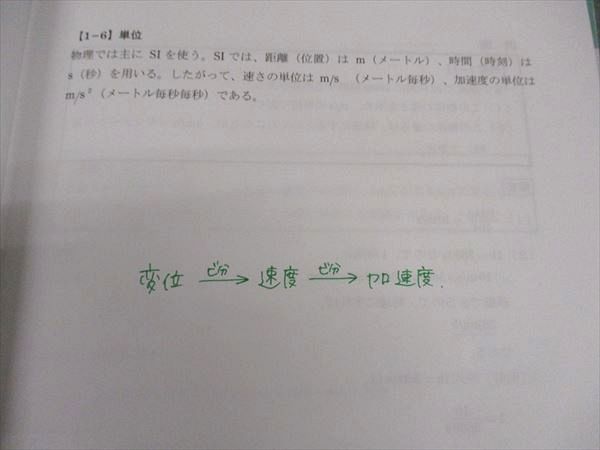 【1-6】単位
物理では主に SI を使う。SI では、距離（位置）は m（メートル）、時間（時刻）は
s（秒）を用いる。したがって、速さの単位は m/s （メートル毎秒）、加速度の単位は
m/s²（メートル毎秒毎秒）である。
変位 ビ分→ 速度 ビ分→ 加速度.